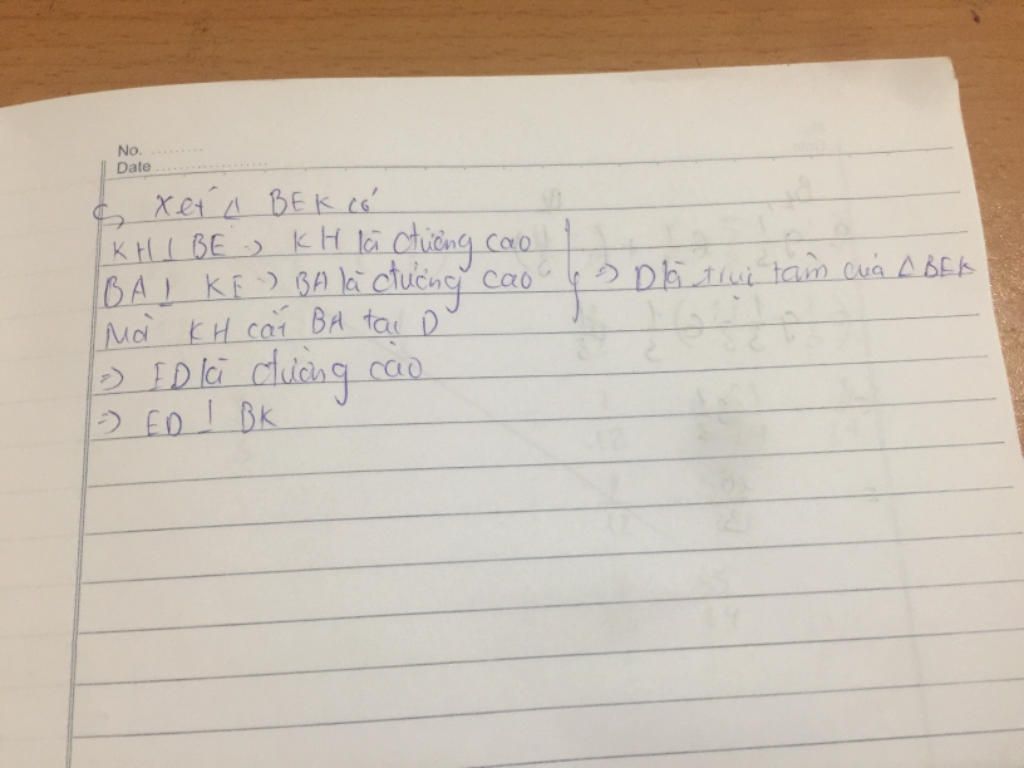 No.
Date
c, Xét △ BEK có
KH ⊥ BE => KH là đường cao
BA ⊥ KE => BA là đường cao => D là trực tâm của △ BEK
Mà KH cắt BA tại D
=> ED là đường cao
=> ED ⊥ BK